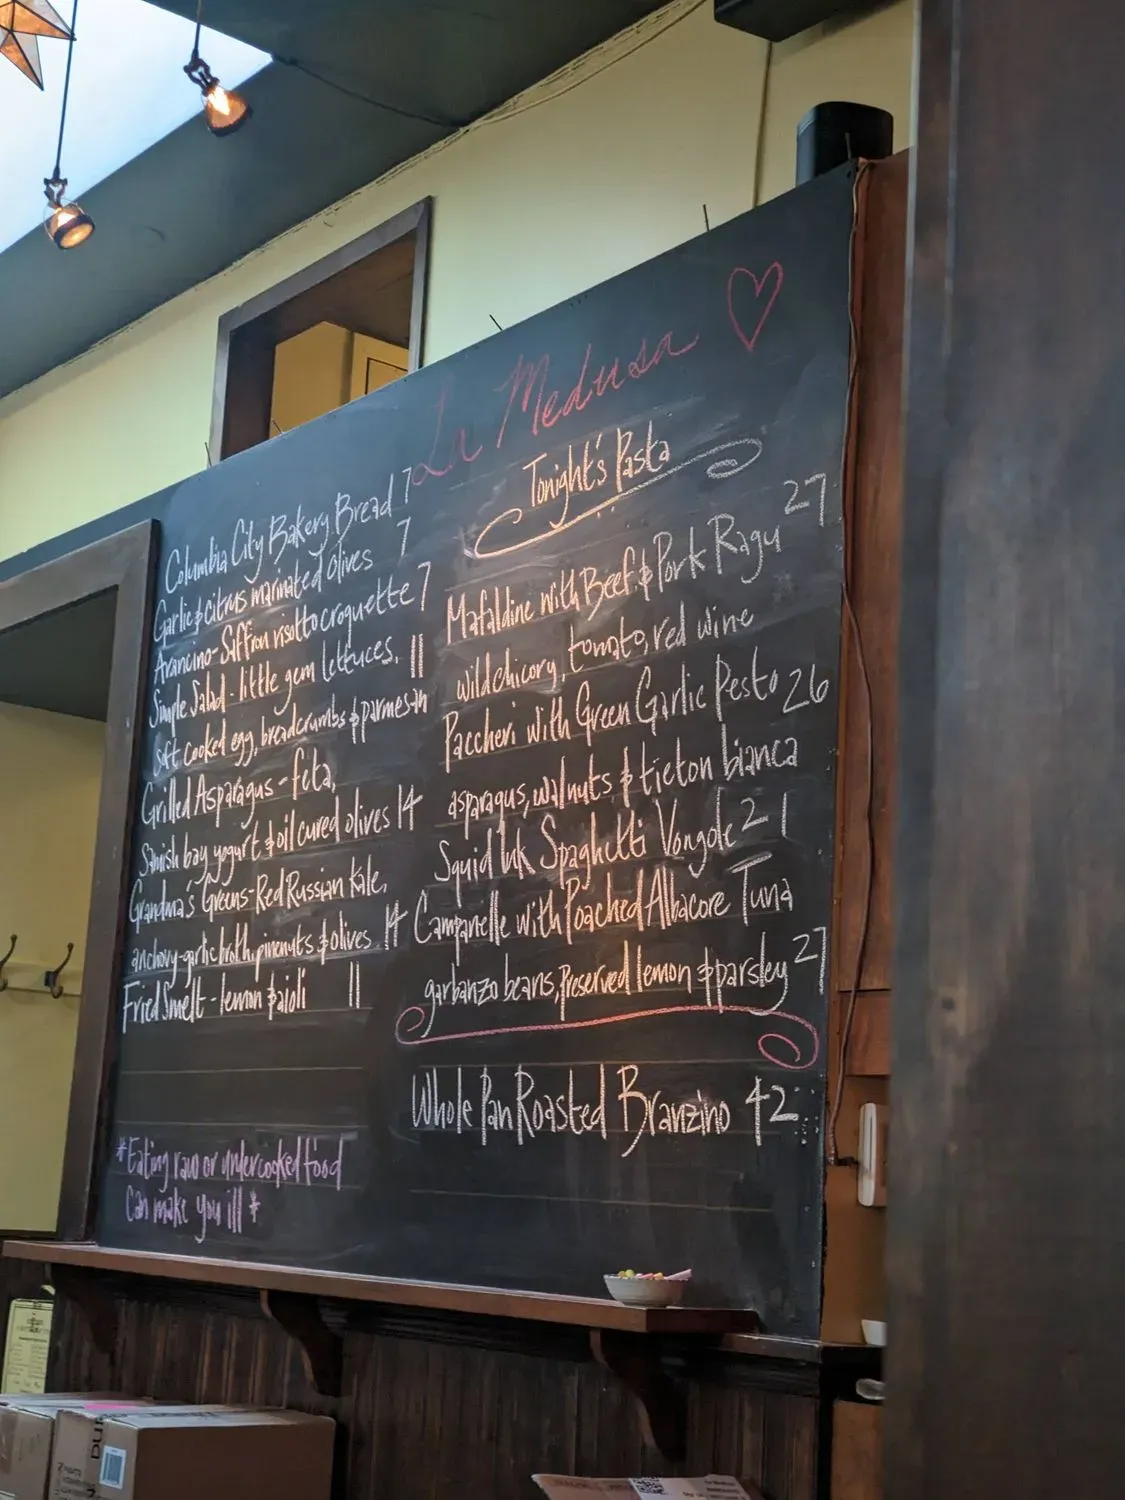 La Medusa
Columbia City Bakery Bread 7
Garlic & citrus marinated olives 7
Arancino-Saffron risotto croquette 7
Simple Salad - little gem lettuces, 11
soft cooked egg, breadcrumbs & parmesan
Grilled Asparagus - feta,
Samish bay yogurt & oil cured olives 14
Grandma's Greens-Red Russian Kale,
anchovy-garlic broth, pinenuts & olives 14
Fried Smelt - lemon & aioli 11
*Eating raw or undercooked food
can make you ill*
Tonight's Pasta
Mafaldine with Beef & Pork Ragu 27
wild chicory, tomato, red wine
Paccheri with Green Garlic Pesto 26
asparagus, walnuts & tieton bianca
Squid Ink Spaghetti Vongole 21
Campanelle with Poached Albacore Tuna
garbanzo beans, Preserved lemon & parsley 27
Whole Pan Roasted Branzino 42